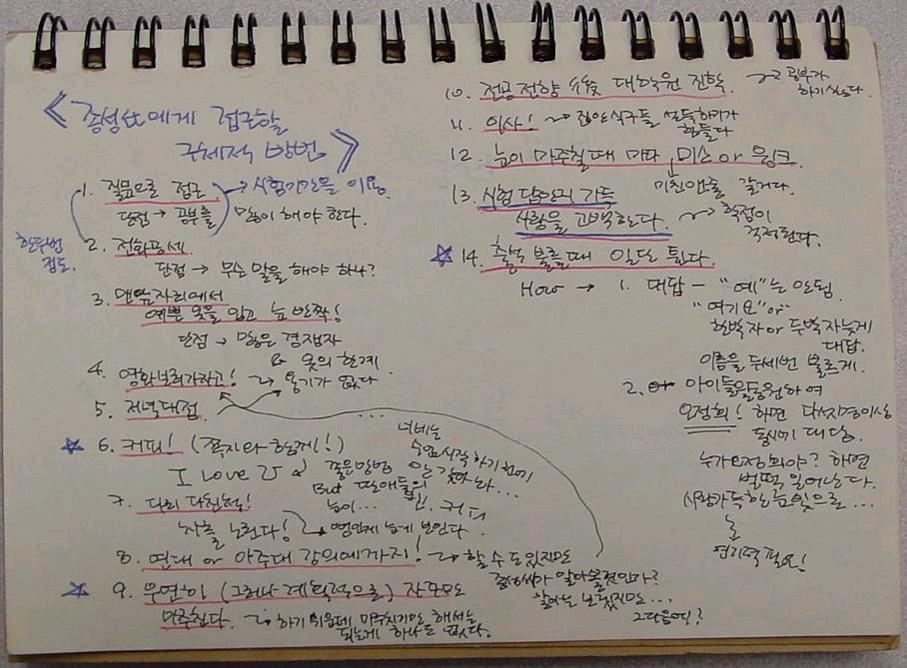 《 종성씨에게 접근할
구체적 방법 》
1. 질문으로 접근 → 시험기간을 이용
단점 → 공부를 많이 해야 한다.
한두번 정도.
2. 전화공세
단점 → 무슨 말을 해야 하나?
3. 맨앞자리에서
예쁜 옷을 입고 눈 반짝!
단점 → 많은 경쟁자
& 옷의 한계
4. 영화보러가자고! → 용기가 없다
5. 저녁대접
...
☆ 6. 커피! (쪽지와 함께!)
I Love U
좋은방법 인 것 같아 나...
수업시작하기전에
But 딴애들의
눈이... 커피
7. 다리 다친척!
차를 노린다! → 뻔한게 눈에 보인다.
8. 연대 or 아주대 강의에까지! → 할 수도 있지만
알아볼것인가?
알아는 보겠지만...
그다음엔?
☆ 9. 우연히 (그러나 계획적으로) 자꾸만
마주친다. → 하기 쉬운데 마주치기만 해서는
되는게 하나도 없다.
10. 전공전향 대학원 진학 → 공부가
하기싫다.
11. 이사! → 집안식구들 설득하기가
힘들다
12. 눈이 마주칠때 마다 미소 or 윙크
미친앤줄 알거다.
13. 시험 답안의 가득
사랑을 고백한다. → 학점이
걱정된다.
☆ 14. 출석 부를때 일단 튄다.
How → 1. 대답 - "예"는 안됨.
"여기요" or
한박자 or 두박자늦게
대답.
이름을 두세번 부르게.
2. 아이들을동원하여
오정희! 하면 다섯명이상
동시에 대답.
누가오정희야? 하면
벌떡 일어난다.
사랑가득한눈빛으로...
연기력필요!